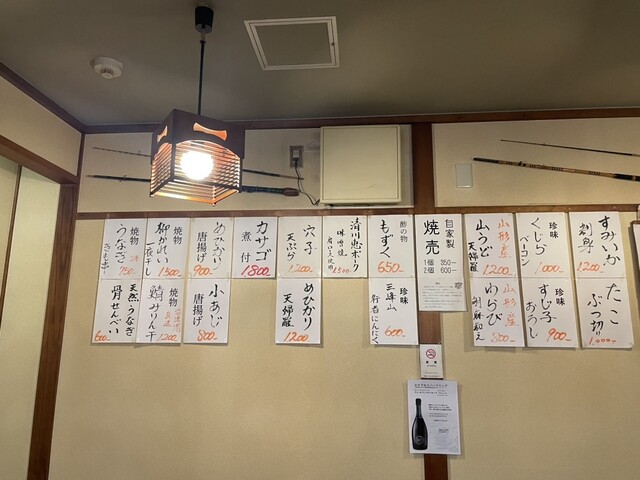 すみいか
刺身
1200
たこ
ぶつ切り
珍味
くじら
ベーコン
1000
珍味
すじ子
おろし
900
山形産
山うど
天婦羅
1200
山形産
わらび
自家製
焼売
1個 350
2個 600
酢の物
もずく
650
珍味
三峰山
行者にんにく
600
清川恵ポーク
味噌焼
1500
穴子
天ぷら
1200
めひかり
天婦羅
1200
カサゴ
煮付
1800
めひかり
唐揚げ
900
小あじ
唐揚げ
800
焼物
柳かれい
一夜干し
1500
焼物
鯖みりん干
1200
焼物
うなぎ
きも串
天然うなぎ
骨せんべい
600